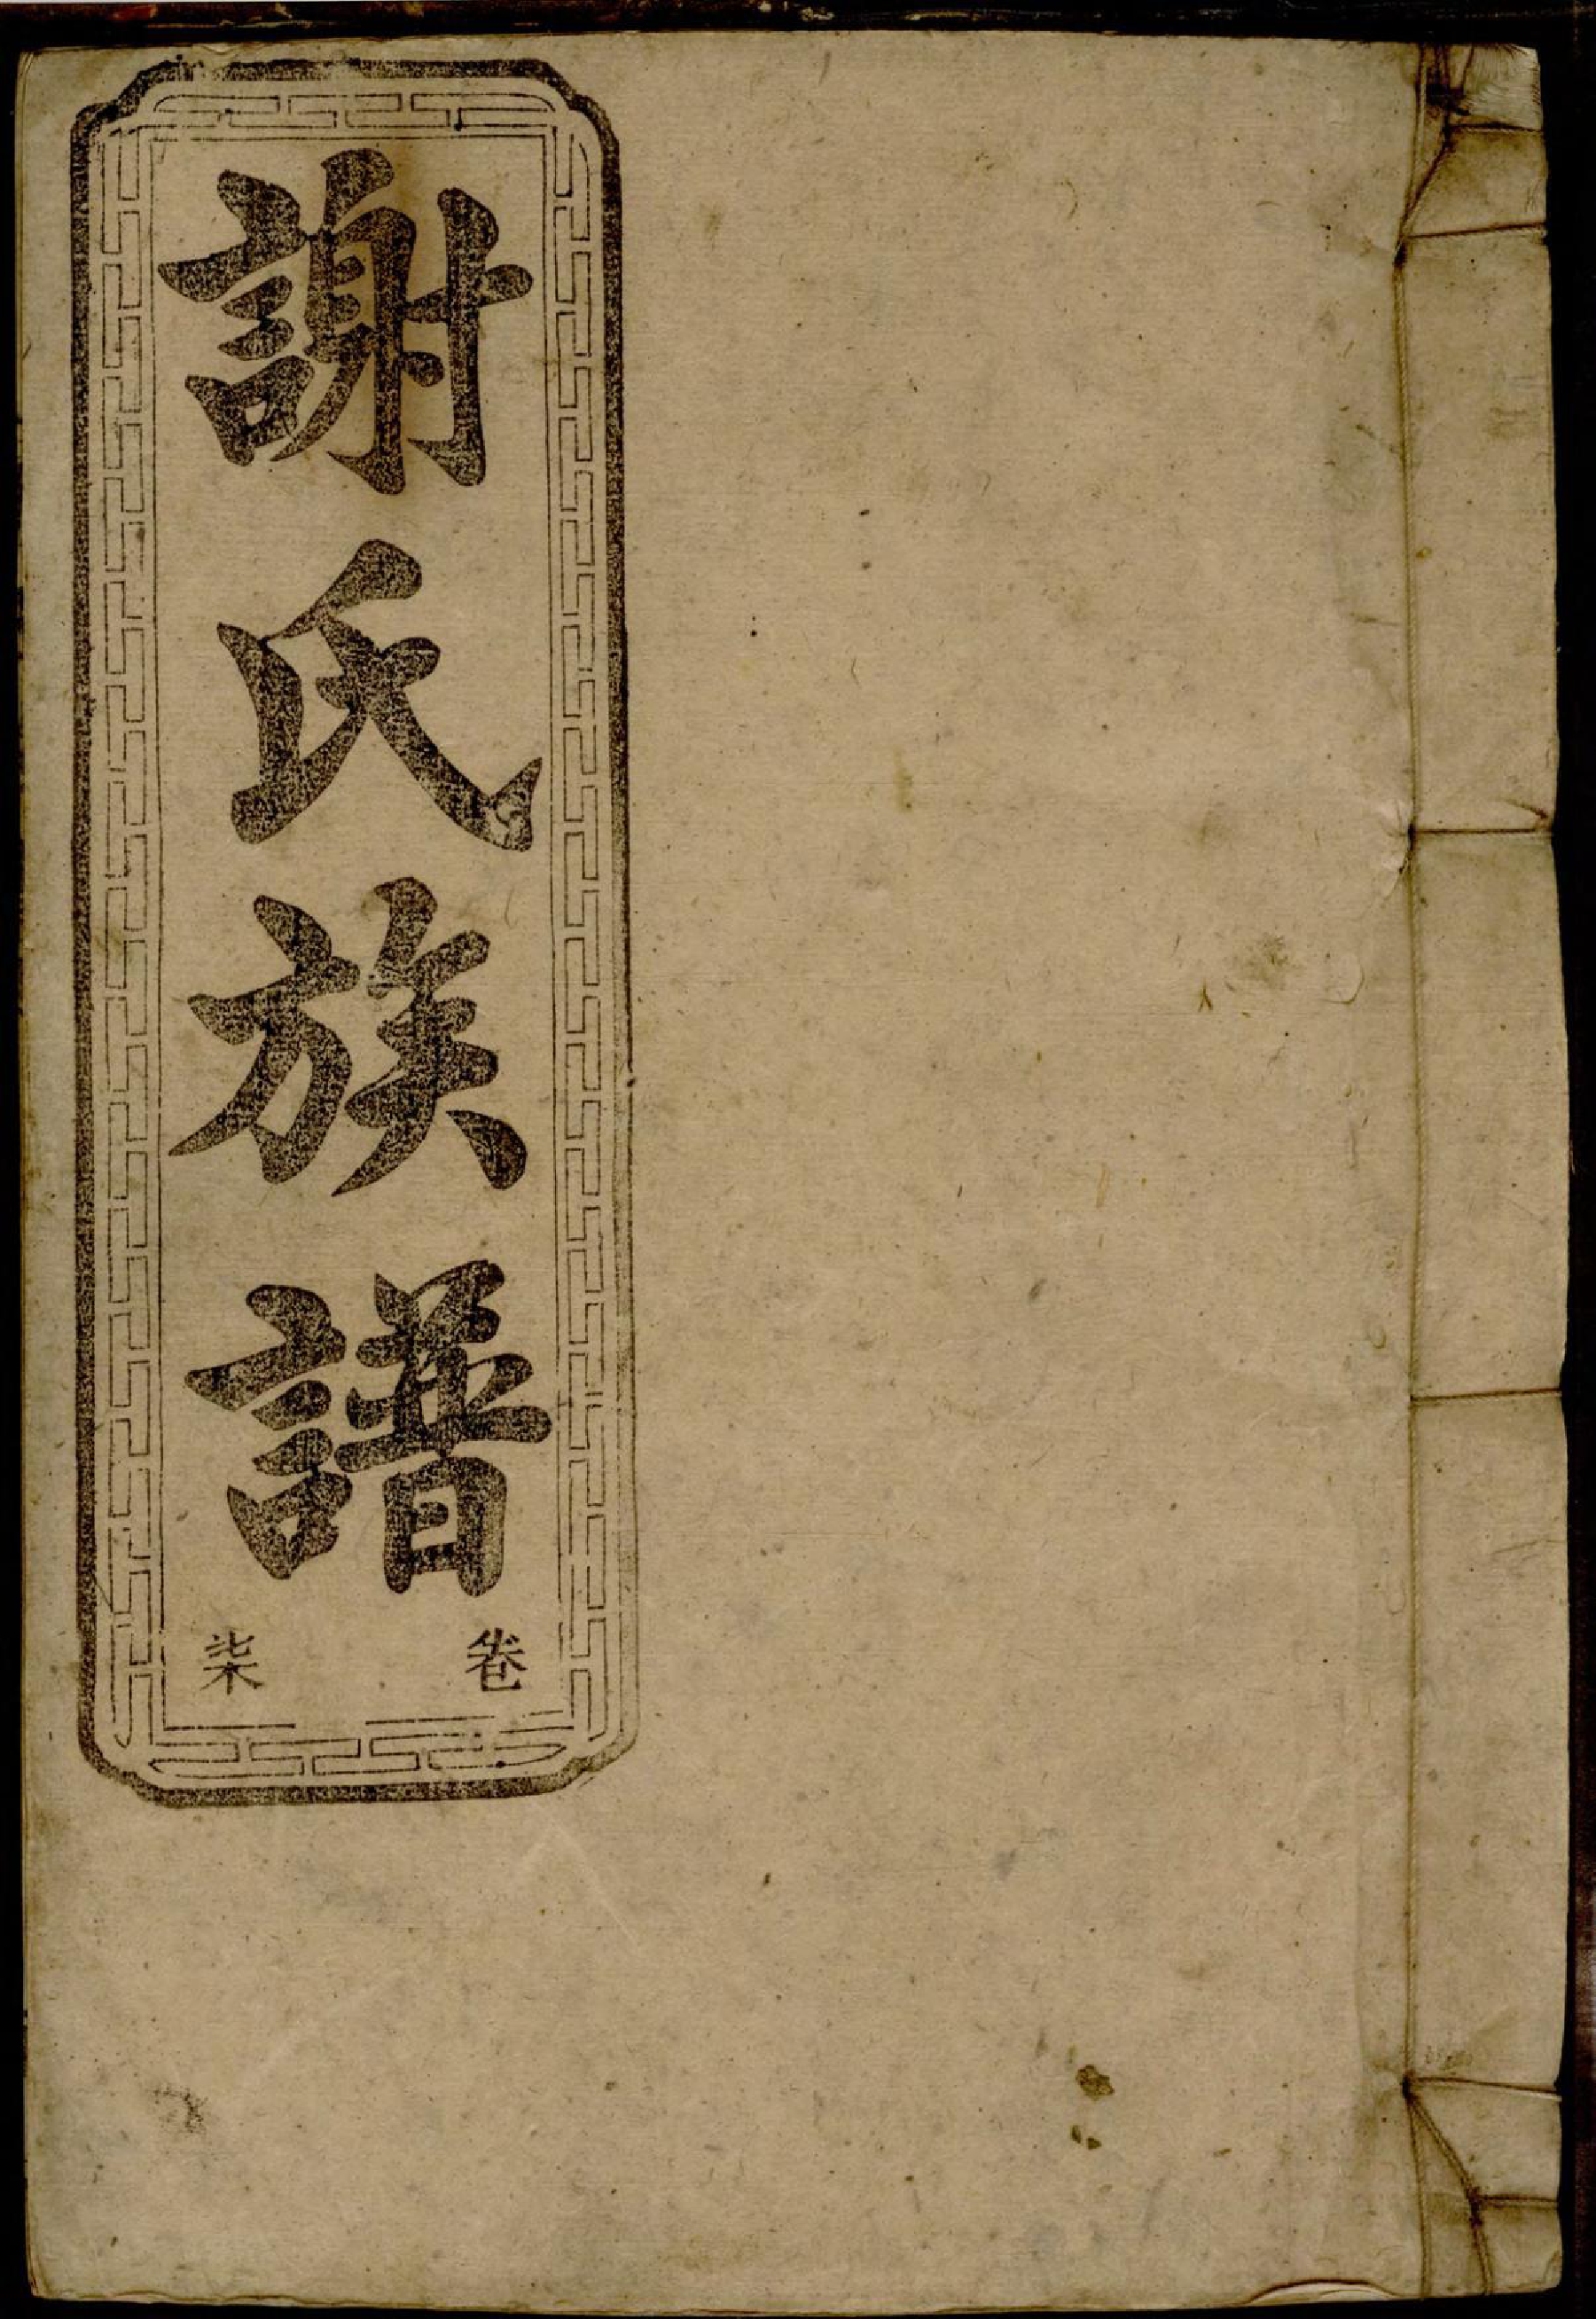 謝氏族譜
卷柒